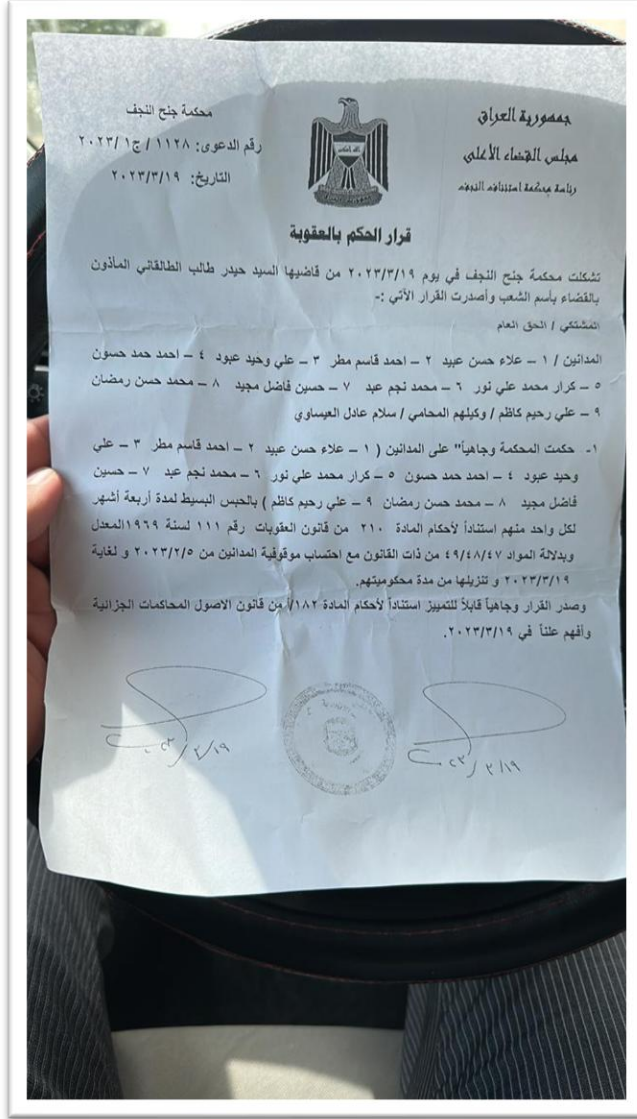 جمهورية العراق
مجلس القضاء الأعلى
رئاسة محكمة استئناف النجف
محكمة جنح النجف
رقم الدعوى: ١١٢٨ / ج١ /٢٠٢٣
التاريخ: ٢٠٢٣/٣/١٩
قرار الحكم بالعقوبة
تشكلت محكمة جنح النجف في يوم ٢٠٢٣/٣/١٩ من قاضيها السيد حيدر طالب الطالقاني المأذون
بالقضاء بأسم الشعب وأصدرت القرار الآتي :-
المشتكي / الحق العام
المدانين / ١ – علاء حسن عبيد ٢ – احمد قاسم مطر ٣ – علي وحيد عبود ٤ – احمد حمد حسون
٥ – كرار محمد علي نور ٦ – محمد نجم عبد ٧ – حسين فاضل مجيد ٨ – محمد حسن رمضان
٩ – علي رحيم كاظم / وكيلهم المحامي / سلام عادل العيساوي
١- حكمت المحكمة وجاهياً" على المدانين ( ١ – علاء حسن عبيد ٢ – احمد قاسم مطر ٣ – علي
وحيد عبود ٤ – احمد حمد حسون ٥ – كرار محمد علي نور ٦ – محمد نجم عبد ٧ – حسين
فاضل مجيد ٨ – محمد حسن رمضان ٩ – علي رحيم كاظم ) بالحبس البسيط لمدة أربعة أشهر
لكل واحد منهم استناداً لأحكام المادة ٢١٠ من قانون العقوبات رقم ١١١ لسنة ١٩٦٩المعدل
وبدلالة المواد ٤٩/٤٨/٤٧ من ذات القانون مع احتساب موقوفية المدانين من ٢٠٢٣/٢/٥ و لغاية
٢٠٢٣/٣/١٩ و تنزيلها من مدة محكوميتهم.
وصدر القرار وجاهياً قابلاً للتمييز استناداً لأحكام المادة ١٨٢/أ من قانون الاصول المحاكمات الجزائية
وأفهم علناً في ٢٠٢٣/٣/١٩.